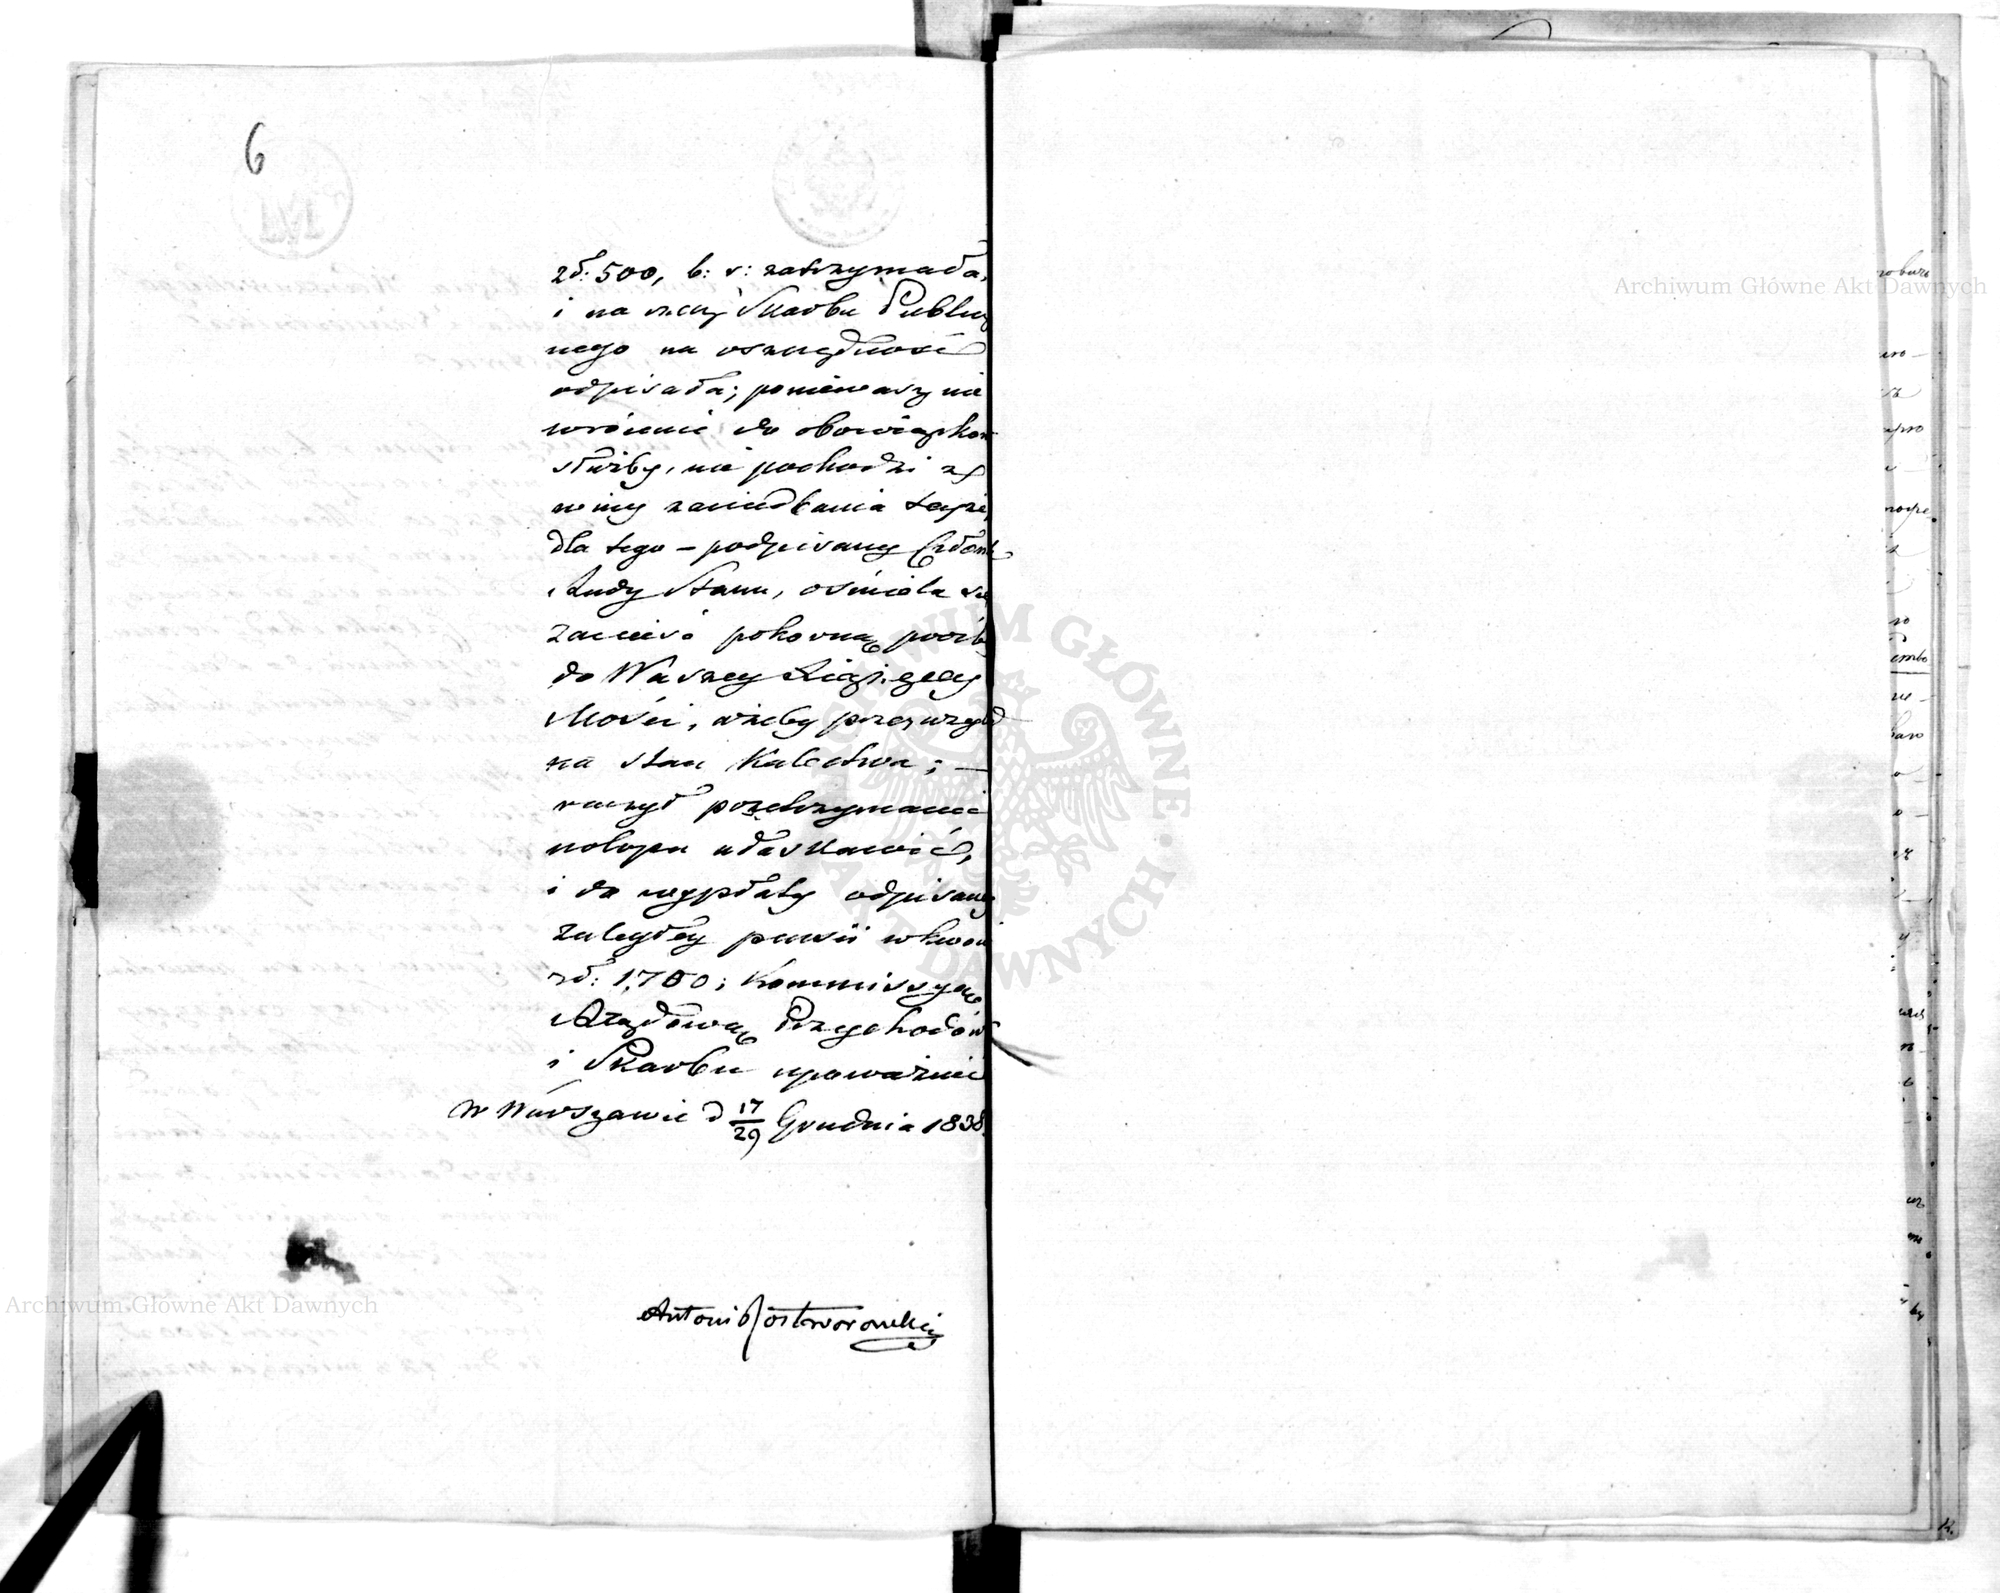 6
zł: 500, b: r: zatrzymała,
i na rzecz Skarbu Publicz
nego na oszczędność
odpisała; ponieważ nie
wrócenie do obowiązków
służby, nie pochodzi z
winy zaniedbania tejże,
dla tego – podpisany Członek
Rady Stanu, ośmiela się
zanieść pokorną prośbę
do Waszey Książęcey
Mości, ażeby przez wzgląd
na stan Kalectwa; –
raczył przetrzymanie
urlopu ułaskawić,
i do wypłaty odpisaney
zaległey pensii w kwocie
zł: 1,700; Kommissyą
Rządową Przychodów
i Skarbu upoważnić
w Warszawie d 17/29 Grudnia 1838.
Antoni Rostworowski
Archiwum Główne Akt Dawnych
Archiwum Główne Akt Dawnych
ARCHIWUM GŁÓWNE AKT DAWNYCH